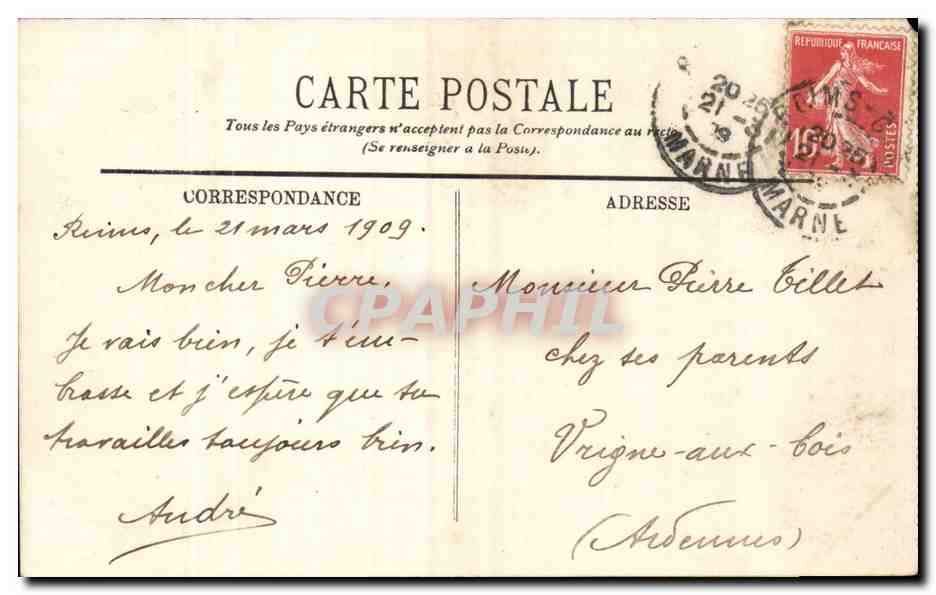 CARTE POSTALE
Tous les Pays étrangers n'acceptent pas la Correspondance au recto
(Se renseigner a la Poste).
REPUBLIQUE FRANÇAISE
10
POSTES
20 25
21 - 3
09
MARNE
20 25
MARNE
CORRESPONDANCE
Reims, le 21 mars 1909.
Mon cher Pierre,
Je vais bien, je t'em-
brasse et j'espère que tu
travailles toujours bien.
André
ADRESSE
Monsieur Pierre Tillet
chez ses parents
Vrigne-aux-bois
(Ardennes)
CPAPHIL